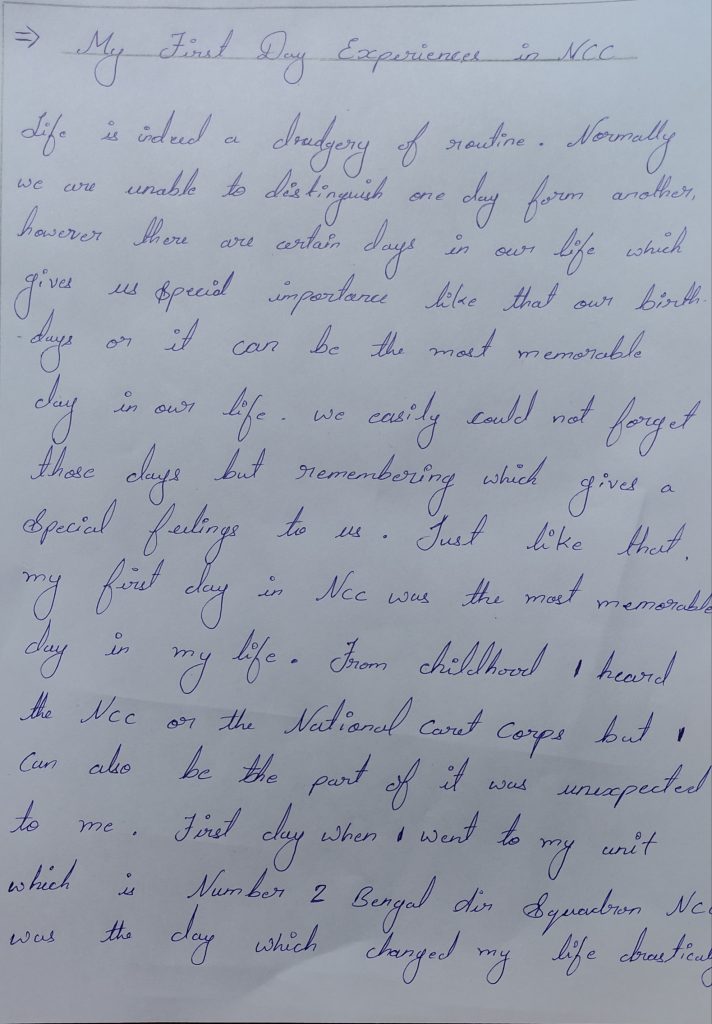 ⇒ My First Day Experiences in NCC
Life is indeed a drudgery of routine. Normally
we are unable to distinguish one day form another,
however there are certain days in our life which
gives us special importance like that our birth-
-days or it can be the most memorable
day in our life. we easily could not forget
those days but remembering which gives a
special feelings to us. Just like that,
my first day in NCC was the most memorable
day in my life. From childhood I heard
the NCC or the National Caret Corps but I
can also be the part of it was unexpected
to me. First day when I went to my unit
which is Number 2 Bengal Air Squadron NCC
was the day which changed my life drastically